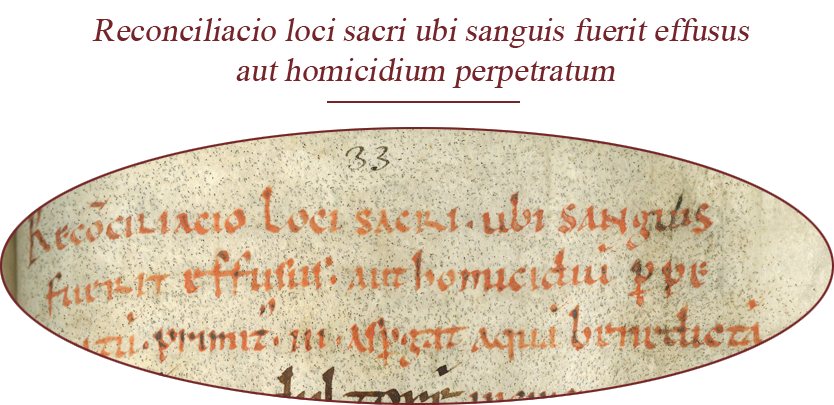 Reconciliacio loci sacri ubi sanguis fuerit effusus
aut homicidium perpetratum
33
Recōciliacio loci sacri. ubi sanguis
fuerit effusus: aut homicidiũ
aqua benedicta